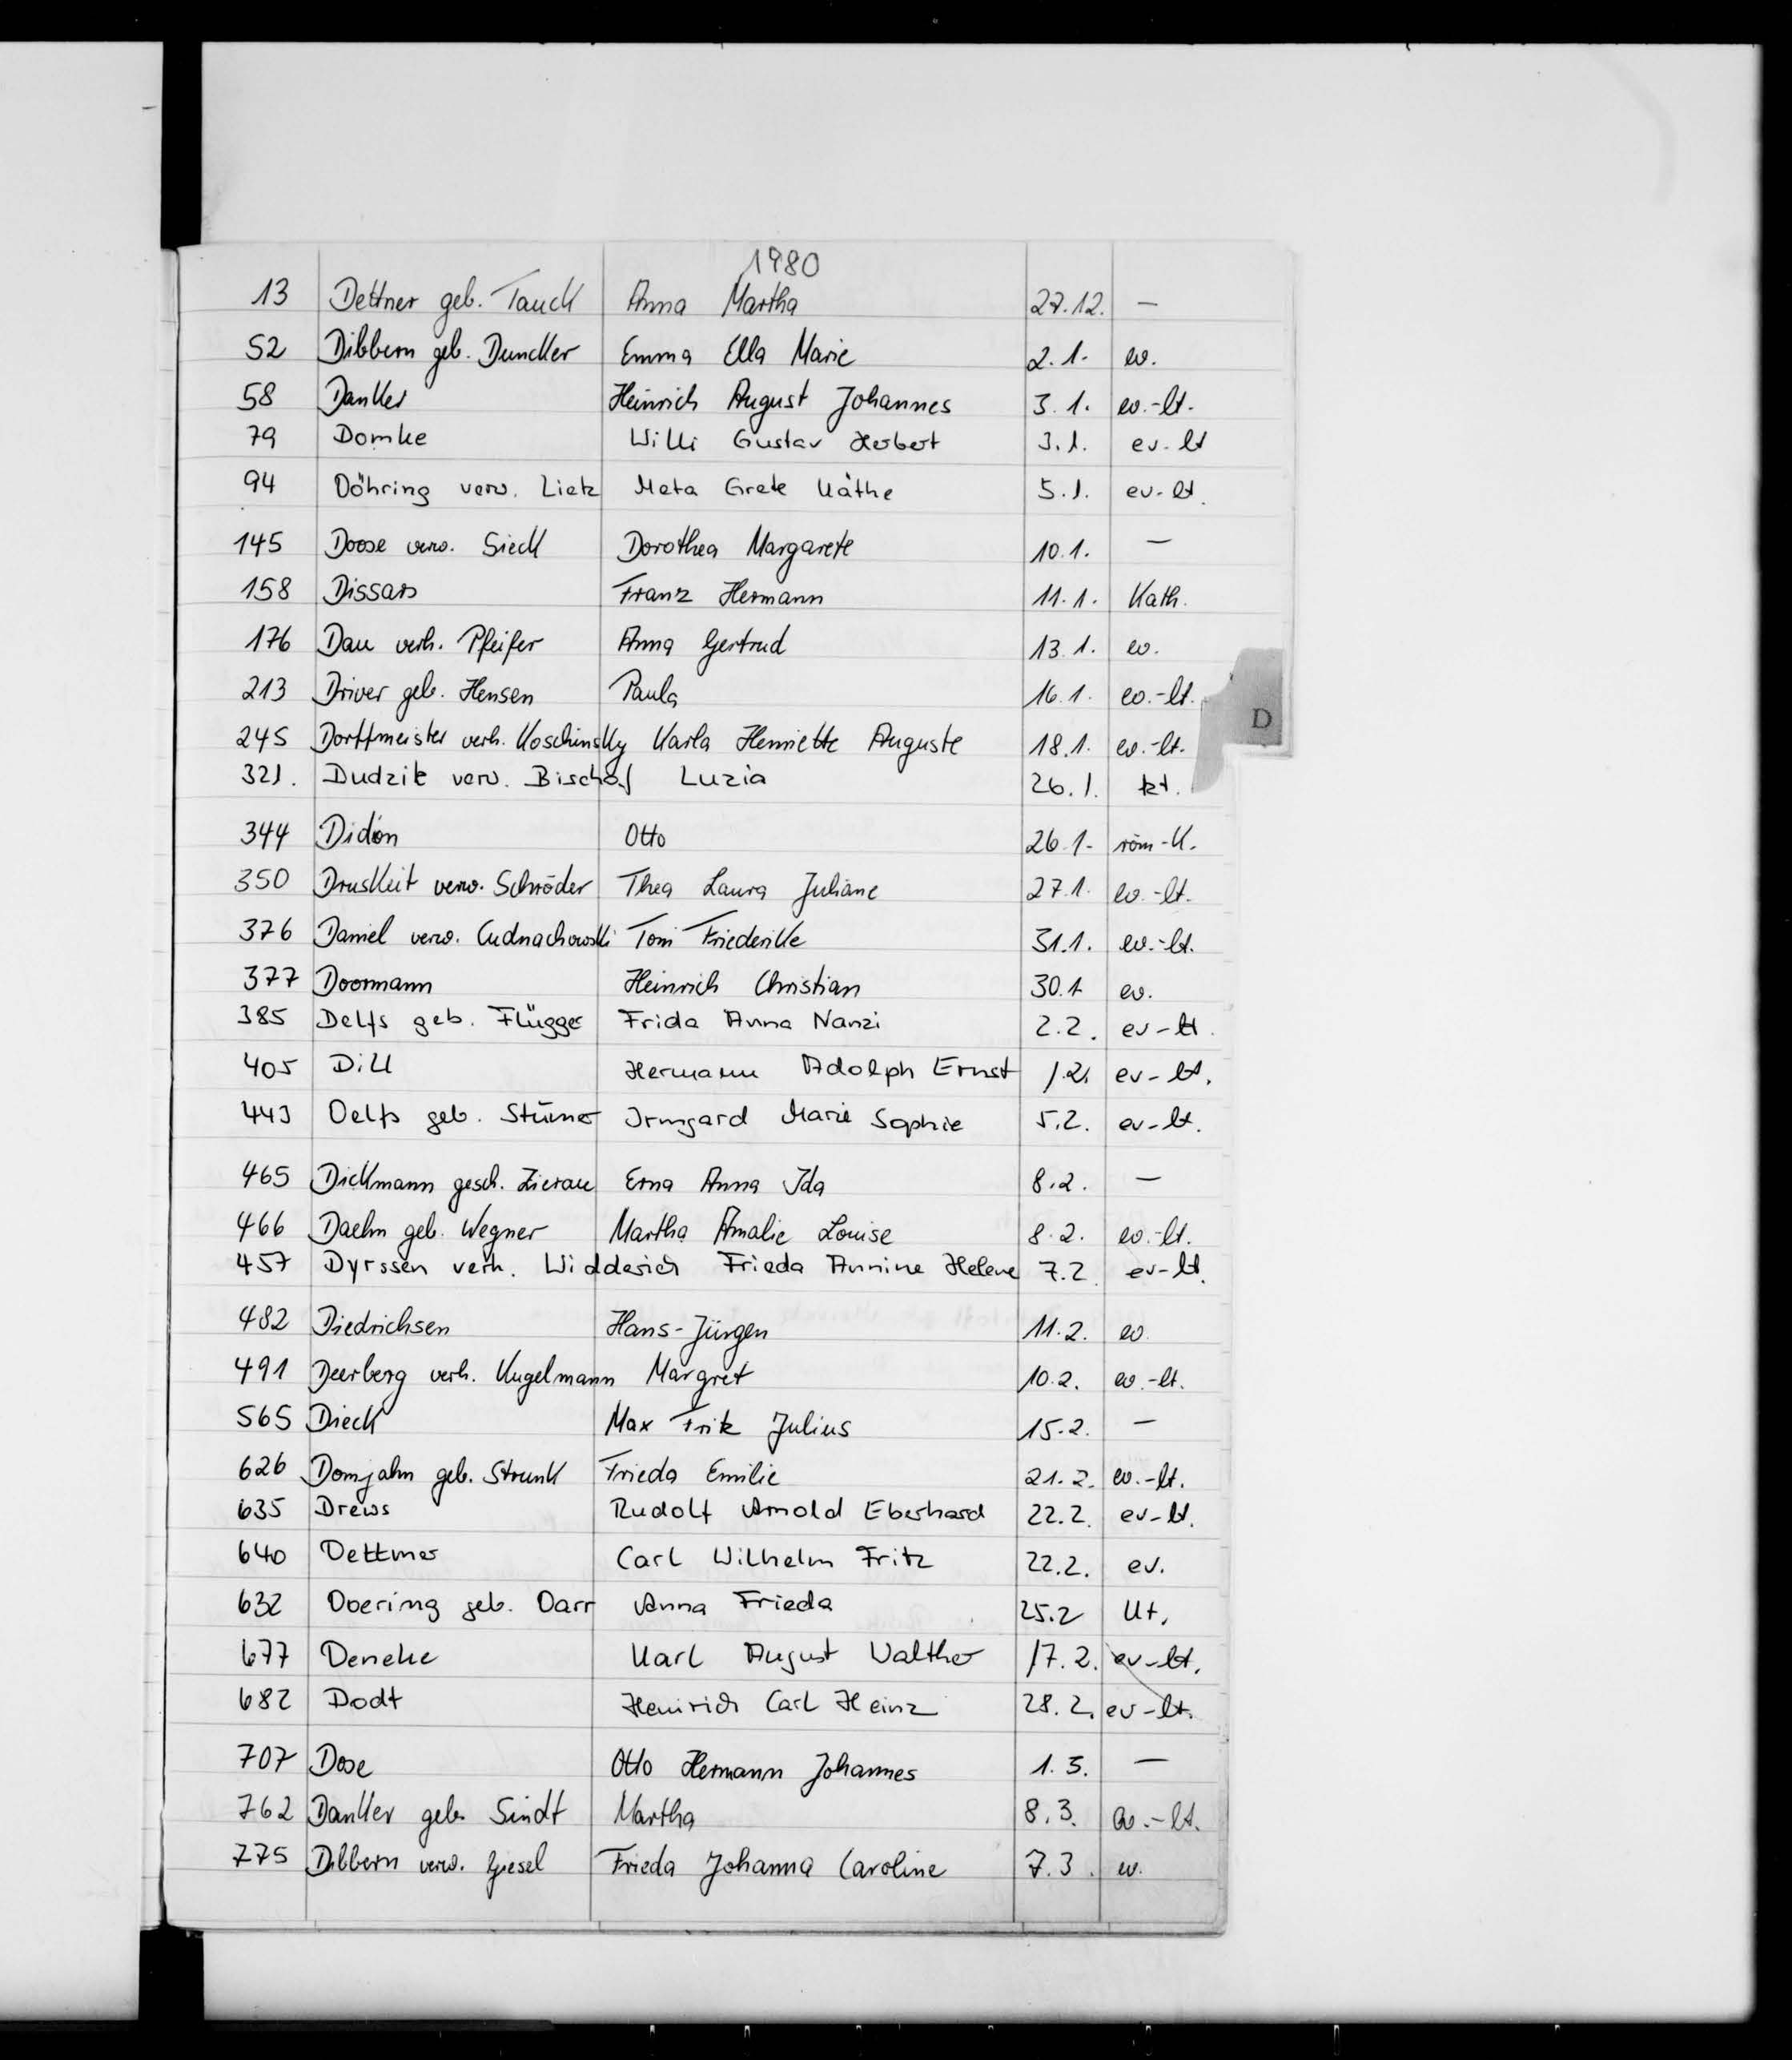 1980
13 Dettner geb. Tauck Anna Martha 27.12. —
52 Dibbern geb. Duncker Emma Ella Marie 2.1. ev.
58 Danker Heinrich August Johannes 3.1. ev.-lt.
79 Domke Willi Gustav Herbert 3.1. ev-lt
94 Döhring verw. Lietz Meta Grete Käthe 5.1. ev-lt.
145 Doose verw. Sieck Dorothea Margarete 10.1. —
158 Dissars Franz Hermann 11.1. Kath.
176 Dau verh. Pfeifer Anna Gertrud 13.1. ev.
213 Driver geb. Hensen Paula 16.1. ev.-lt.
D
245 Dorffmeister verh. Koschinsky Karla Henriette Auguste 18.1. ev.-lt.
321. Dudzik verw. Bischof Luzia 26.1. kt.
344 Didion Otto 26.1. röm-K.
350 Druskeit verw. Schröder Thea Laura Juliane 27.1. ev.-lt.
376 Daniel verw. Cudnachowski Toni Friederike 31.1. ev.-lt.
377 Doormann Heinrich Christian 30.1 ev.
385 Delfs geb. Flügge Frida Anna Nanzi 2.2. ev-lt.
405 Dill Hermann Adolph Ernst 1.2. ev-lt.
443 Delfs geb. Stürmer Irmgard Marie Sophie 5.2. ev-lt.
465 Dickmann gesch. Zierau Erna Anna Ida 8.2. —
466 Daehn geb. Wegner Martha Amalie Louise 8.2. ev.-lt.
457 Dyrssen verh. Widderich Frieda Annine Helene 7.2. ev-lt.
482 Diedrichsen Hans-Jürgen 11.2. ev
491 Deerberg verh. Kugelmann Margret 10.2. ev.-lt.
565 Dieck Max Fritz Julius 15.2. —
626 Domjahn geb. Strunk Frieda Emilie 21.2. ev.-lt.
635 Drews Rudolf Arnold Eberhard 22.2. ev-lt.
640 Dettmer Carl Wilhelm Fritz 22.2. ev.
632 Doering geb. Darr Anna Frieda 25.2 kt.
677 Deneke Karl August Walther 17.2. ev-lt.
682 Dodt Heinrich Carl Heinz 28.2. ev-lt.
707 Dose Otto Hermann Johannes 1.3. —
762 Danker geb. Sindt Martha 8.3. ev.-lt.
775 Dibbern verw. Giesel Frieda Johanna Caroline 7.3. ev.